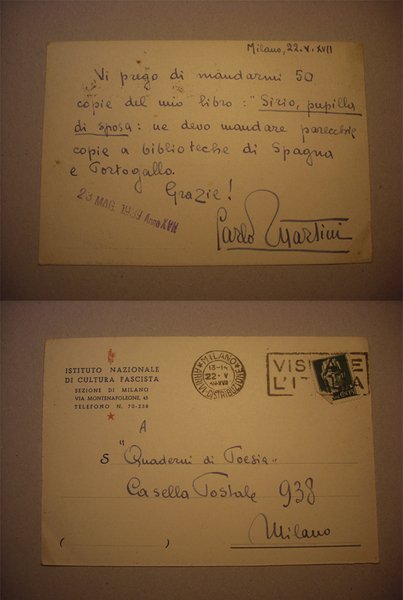 Milano, 22.V.XVII
Vi prego di mandarmi 50
copie del mio libro: "Sirio, pupilla
di sposa: ne devo mandare parecchie
copie a biblioteche di Spagna
e Portogallo.
Grazie!
23 MAG. 1939 Anno XVII
Carlo Martini
ISTITUTO NAZIONALE
DI CULTURA FASCISTA
SEZIONE DI MILANO
VIA MONTENAPOLEONE, 45
TELEFONO N. 70-238
MILANO
13-14
22·V
ARRIVI E DISTRIBUZIONE
VISITATE
L'ITALIA
A
S "Quaderni di Poesia"
Casella Postale 938
Milano
( )